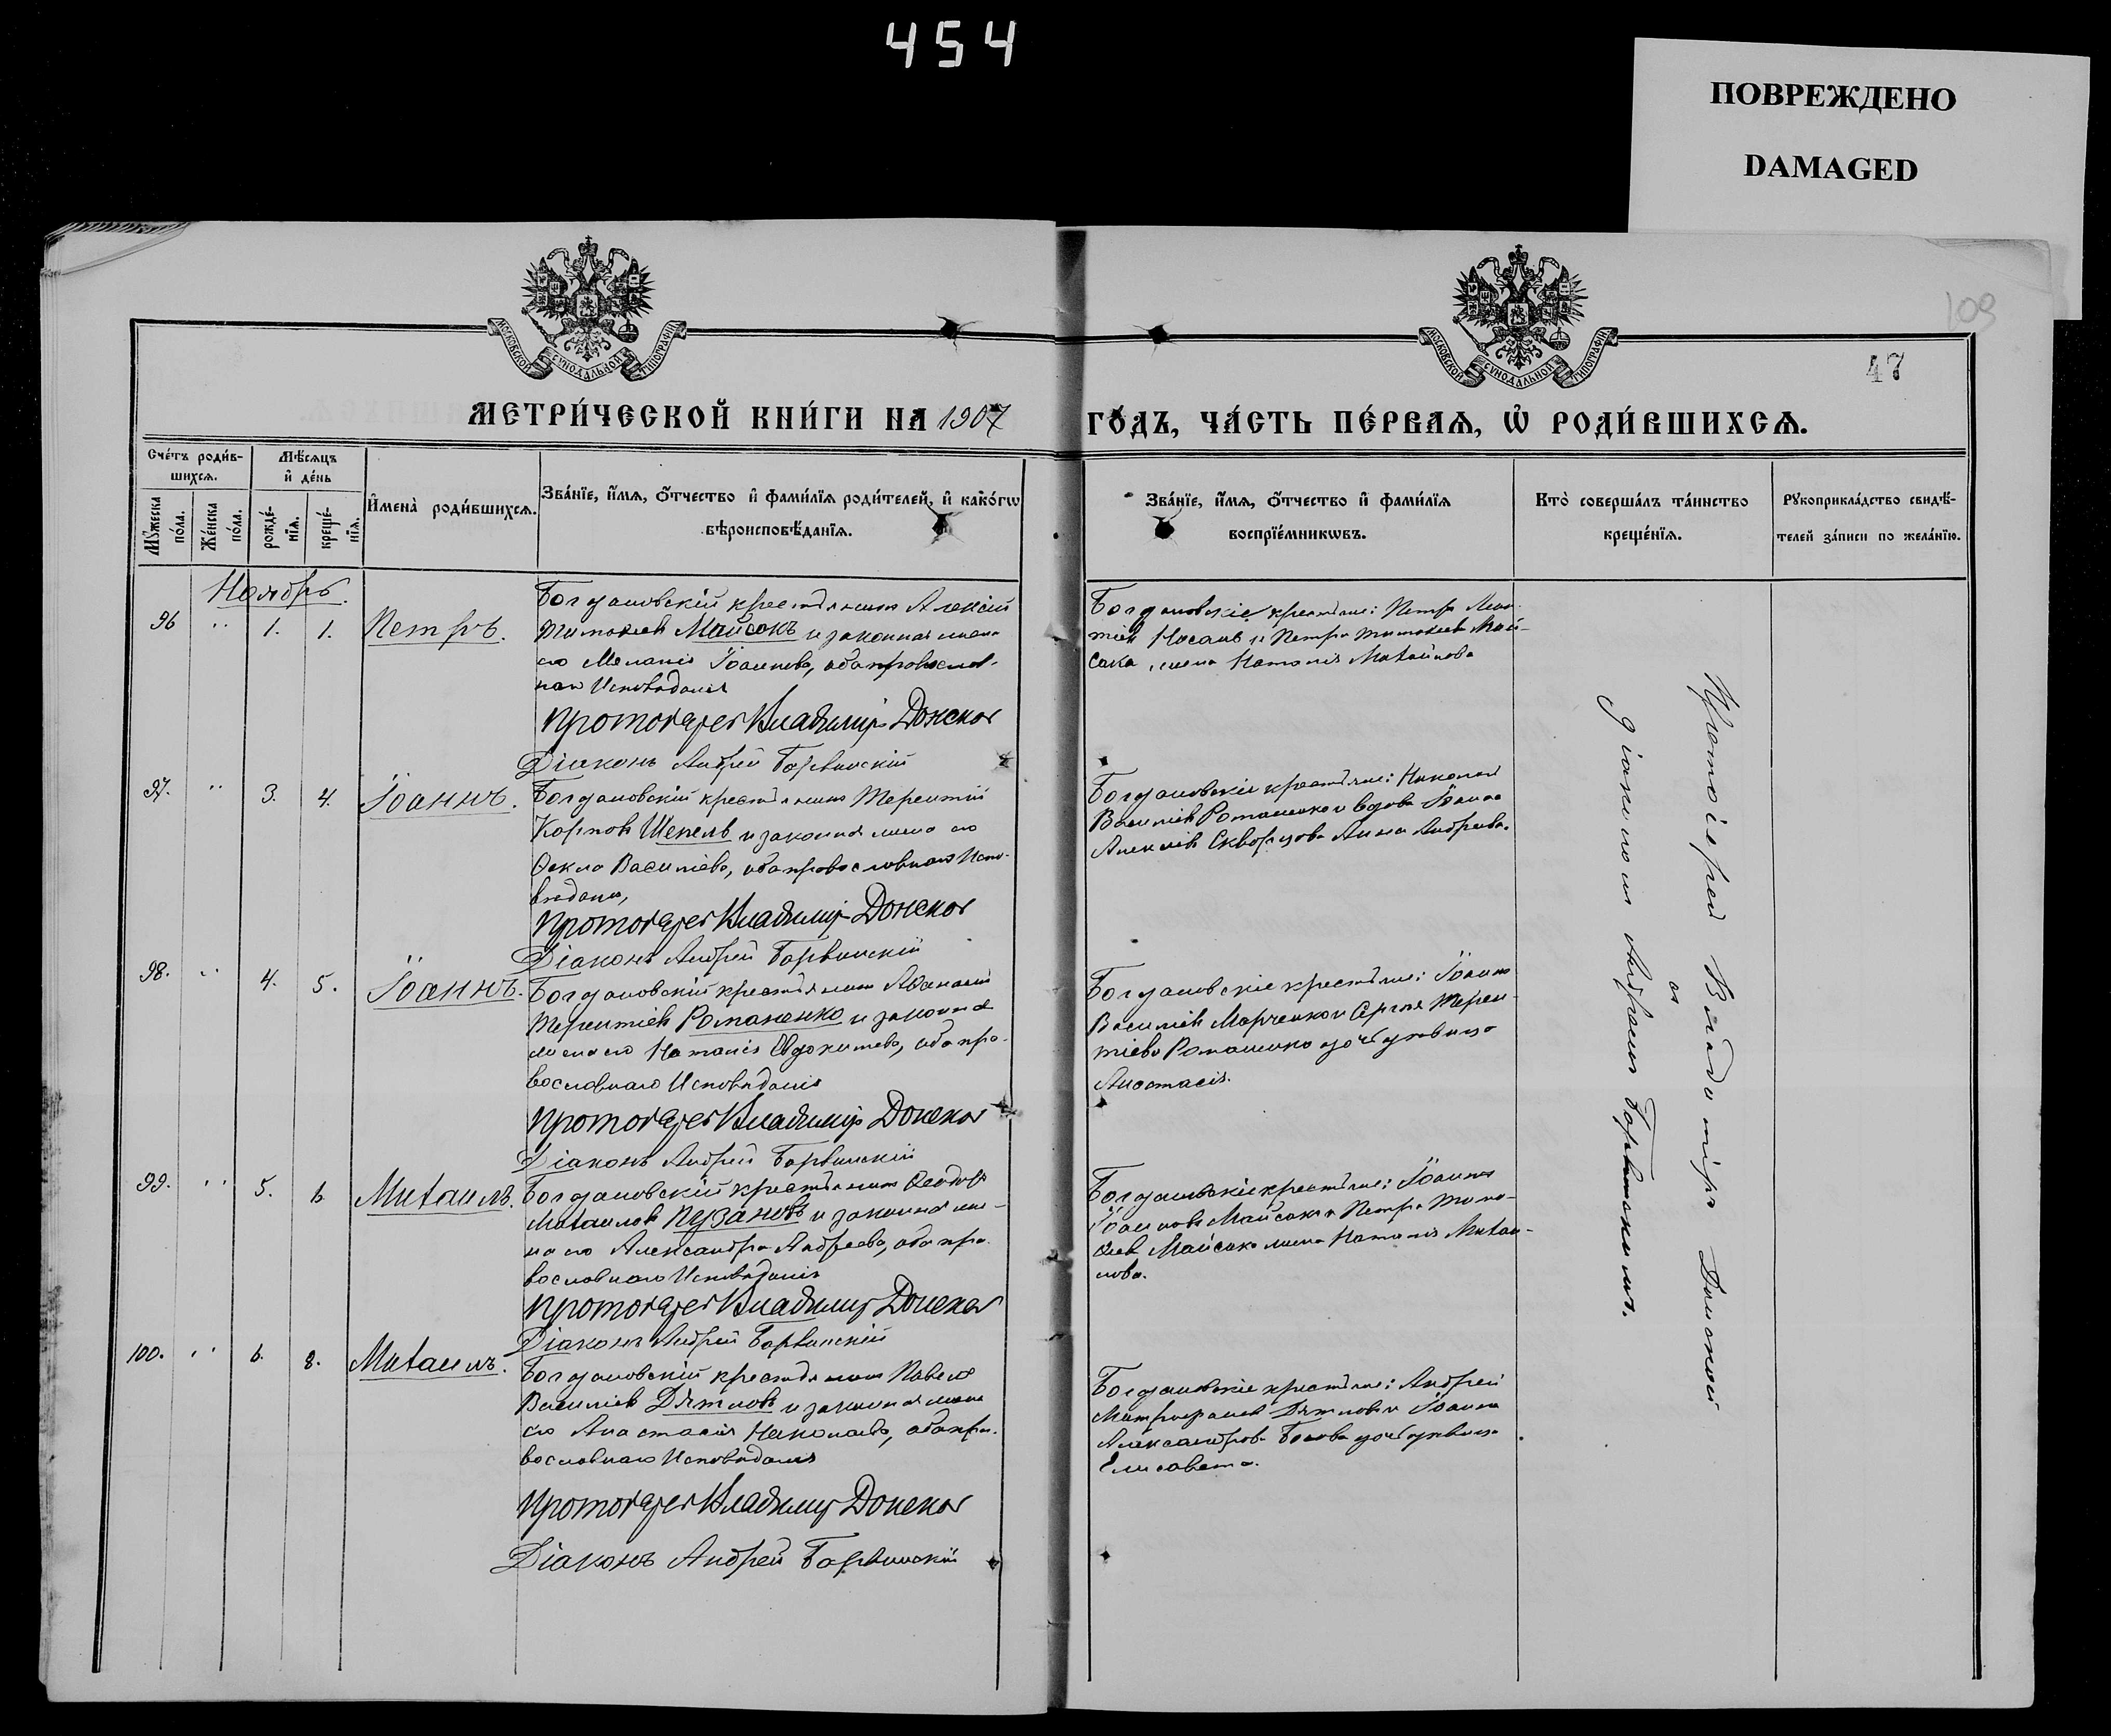 454
ПОВРЕЖДЕНО
DAMAGED
109
47
МОСКОВСКОЙ СУНОДАЛЬНОЙ ТИПОГРАФІИ
МОСКОВСКОЙ СУНОДАЛЬНОЙ ТИПОГРАФІИ
МЕТРИ́ЧЕСКОЙ КНИ́ГИ НА 1907 ГО́ДЪ, ЧА́СТЬ ПЕ́РВАѦ, Ѡ҆ РОДИ́ВШИХСѦ.
Сче́тъ роди́в-
шихсѧ.
Мꙋ́жеска по́ла.
Же́нска по́ла.
Мѣ́сѧцъ
и҆ де́нь
рожде́-
нїѧ.
креще́-
нїѧ.
И҆мена̀ роди́вшихсѧ.
Зва́нїе, и҆́мѧ, ѻ҆́тчество и҆ фами́лїѧ роди́телей, и҆ како́гѡ
вѣроисповѣ́данїѧ.
Зва́нїе, и҆́мѧ, ѻ҆́тчество и҆ фами́лїѧ
воспрїе́мникѡвъ.
Кто̀ соверша́лъ та́инство
креще́нїѧ.
Рꙋкоприкла́дство свидѣ́-
телей за́писи по жела́нїю.
Ноябрь.
96 " 1. 1. Петръ.
Богдановскій крестьянинъ Алексій
Тимоѳеевъ Майсакъ и законная жена
его Меланія Іоаннова, оба православ-
наго Исповѣданія
Протоіерей Владиміръ Донской
Діаконъ Андрей Барвинскій
Богдановскіе крестьяне: Петръ Леон-
тіевъ Носань и Петра Тимоѳеева Май-
сака, жена Наталія Михайлова
97. " 3. 4. Іоаннъ.
Богдановскій крестьянинъ Терентій
Карповъ Шепель и законная жена его
Ѳекла Василіева, оба православнаго Испо-
вѣданія,
Протоіерей Владиміръ Донской
Діаконъ Андрей Барвинскій
Богдановскіе крестьяне: Николай
Василіевъ Романенко и вдова Іоанна
Алексіева Скворцова Анна Андреева.
98. " 4. 5. Іоаннъ.
Богдановскій крестьянинъ Аѳанасій
Терентіевъ Романенко и законная
жена его Наталія Евдокимова, оба пра-
вославнаго Исповѣданія
Протоіерей Владиміръ Донской
Діаконъ Андрей Барвинскій
Богдановскіе крестьяне: Іоаннъ
Василіевъ Марченко и Сергія Терен-
тіева Романенко дочь дѣвица
Анастасія.
99. " 5. 6 Михаилъ.
Богдановскій крестьянинъ Ѳеодоръ
Михаиловъ Пузановъ и законная же-
на его Александра Андреева, оба пра-
вославнаго Исповѣданія
Протоіерей Владиміръ Донской
Діаконъ Андрей Барвинскій
Богдановскіе крестьяне: Іоаннъ
Іоанновъ Майсакъ и Петра Тимо-
ѳеев Майсака жена Наталія Михаи-
лова.
100. " 6. 8. Михаилъ.
Богдановскій крестьянинъ Павелъ
Василіевъ Дятловъ и законная жена
его Анастасія Николаева, оба пра-
вославнаго Исповѣданія
Протоіерей Владиміръ Донской
Діаконъ Андрей Барвинскій
Богдановскіе крестьяне: Андрей
Митрофановъ Дятловъ и Іоанна
Александрова дочь дѣвица
Елисавета.
Протоіерей Владиміръ Донской
съ
діакономъ Андреемъ Барвинскимъ.